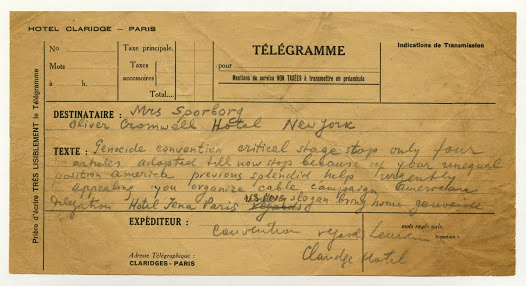 HOTEL CLARIDGE – PARIS
Prière d'écrire TRÈS LISIBLEMENT le Télégramme
Nº
Mots
à h.
Taxe principale.
Taxes
accessoires
Total....
TÉLÉGRAMME
pour
Mentions de service NON TAXÉES à transmettre en préambule
Indications de Transmission
DESTINATAIRE : Mrs Sporborg
Oliver Cromwell Hotel New York
TEXTE : Genocide convention critical stage stop only four
articles adopted till now stop because of your unequal
position America previous splendid help urgently
appealing you organize cable campaign
Delegation Hotel Jena Paris slogan bring home genocide
convention regards Lemkin
EXPÉDITEUR :
Signature :
Claridge Hotel
Adresse Télégraphique :
CLARIDGES - PARIS